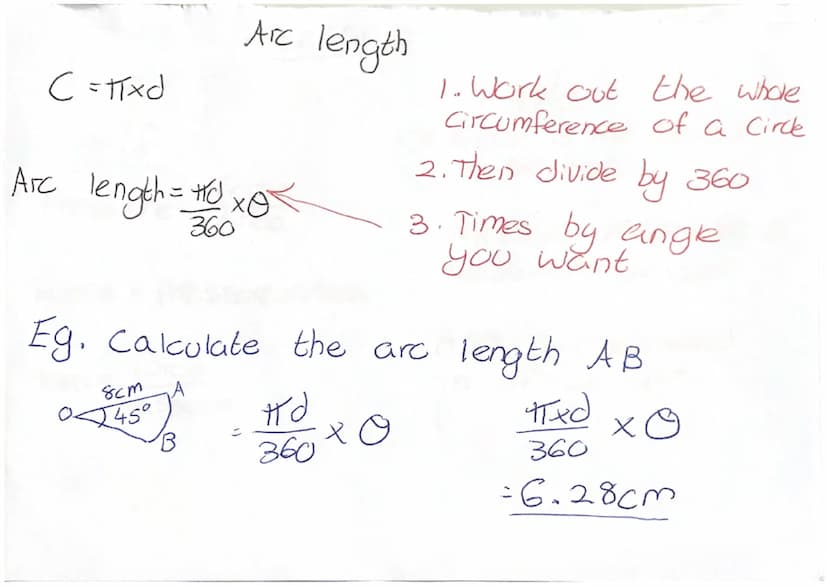 Arc length
C = π×d
1. Work out the whole
circumference of a circle
2. Then divide by 360
3. Times by angle
you want
Arc length = πd/360 ×θ
Eg. Calculate the arc length AB
8cm A
O 45°
B
= πd/360 × θ
π×d/360 × θ
= 6.28cm